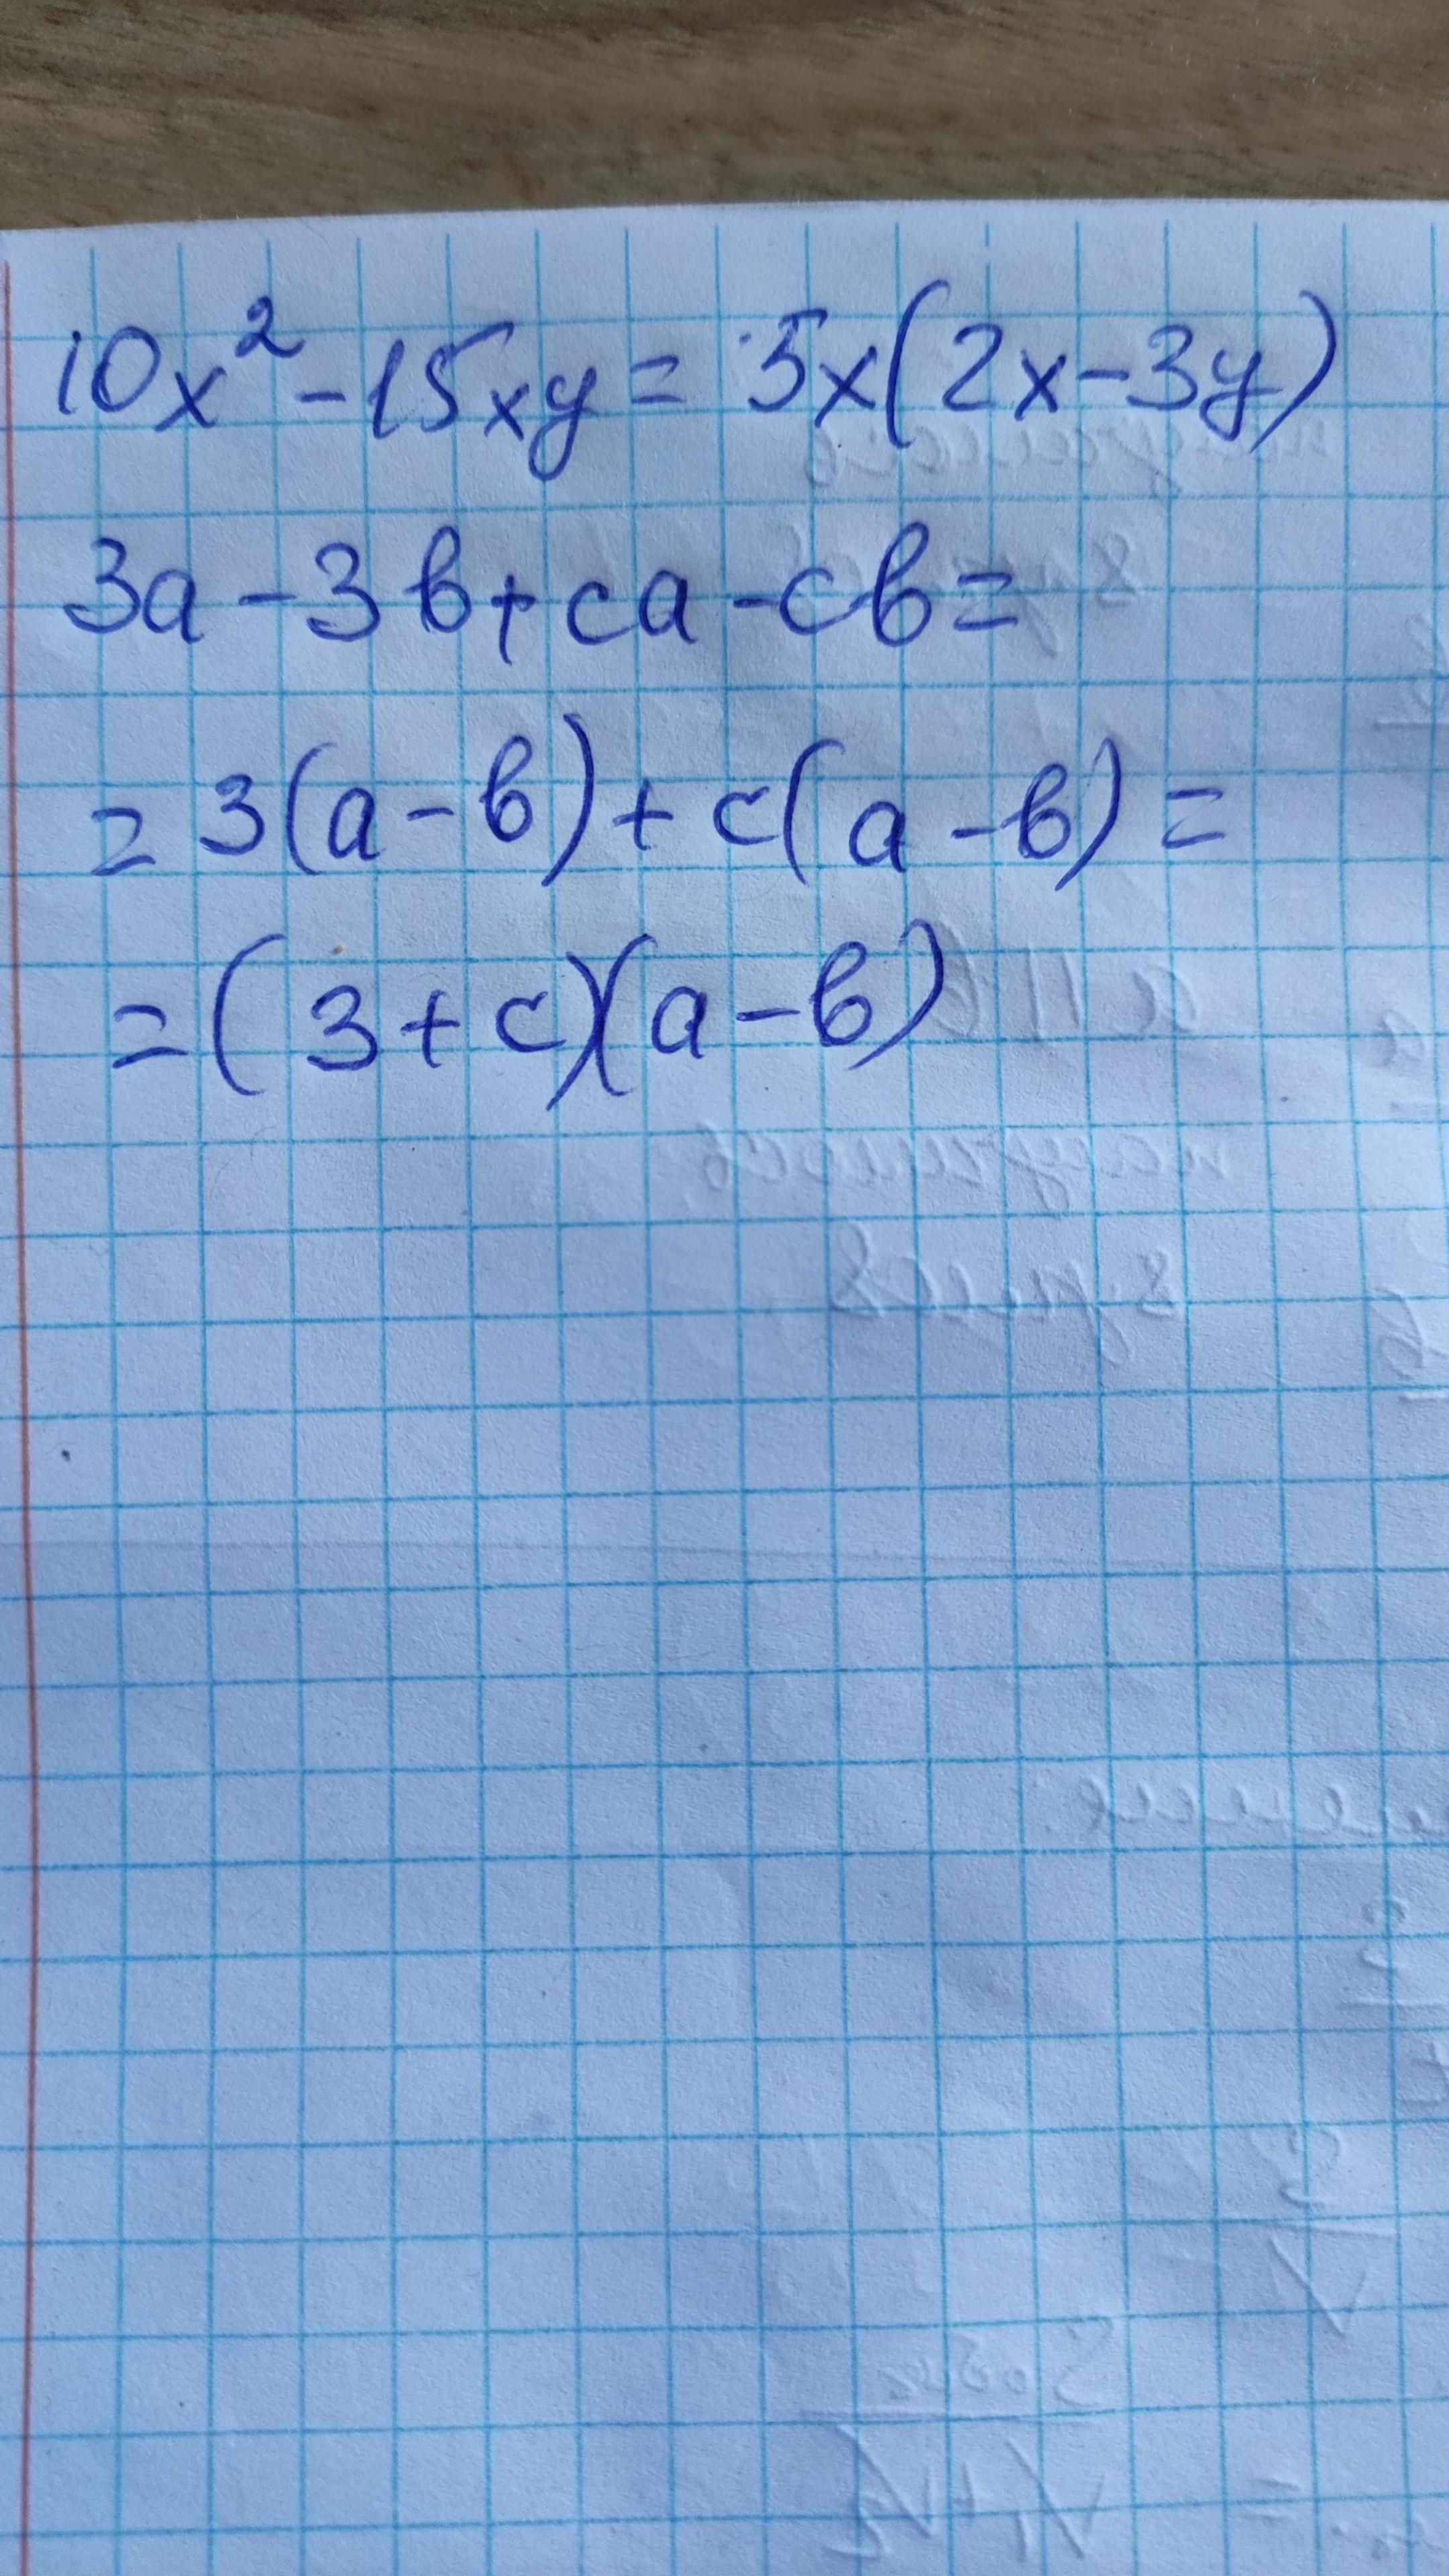 10x² - 15xy = 5x(2x - 3y)
3a - 3b + ca - cb =
= 3(a - b) + c(a - b) =
= (3 + c)(a - b)